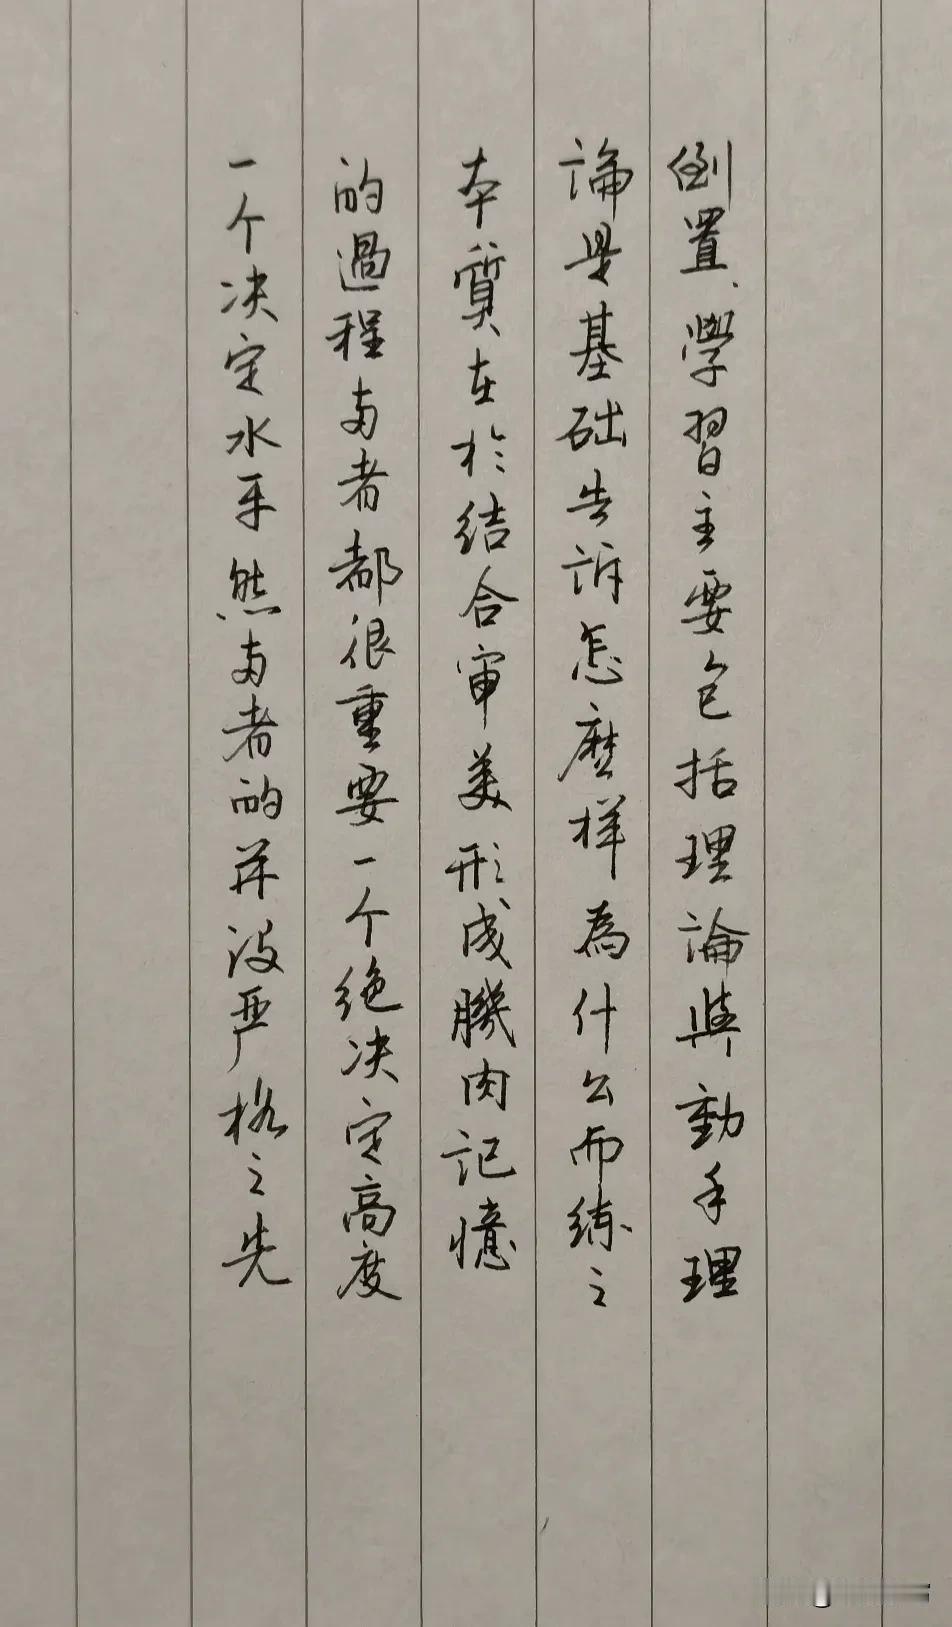 倒置、學習主要包括理論與動手理
論是基础告诉怎麽样為什么而练之
本質在於结合审美形成機肉记憶
的過程两者都很重要一个绝决定高度
一个决定水平然两者的并没严格之先